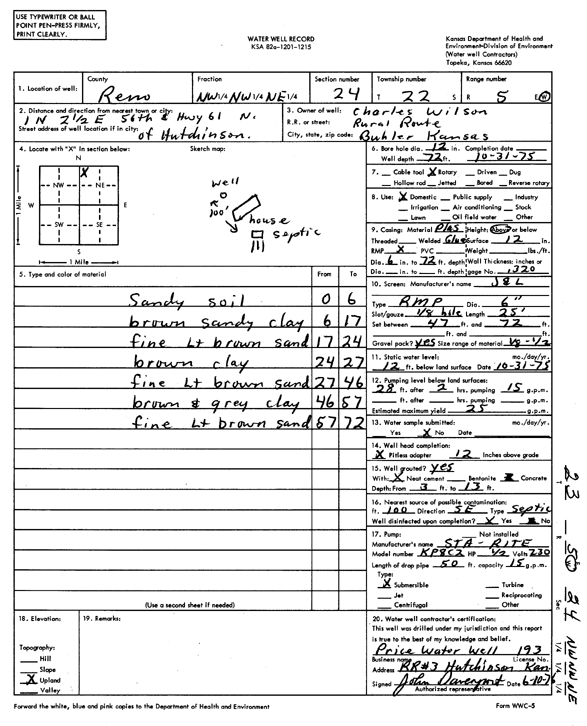 USE TYPEWRITER OR BALL
POINT PEN-PRESS FIRMLY,
PRINT CLEARLY.
WATER WELL RECORD
KSA 82a-1201-1215
Kansas Department of Health and
Environment-Division of Environment
(Water well Contractors)
Topeka, Kansas 66620
1. Location of well: County Reno Fraction NW 1/4 NW 1/4 NE 1/4 Section number 24 Township number T 22 S Range number R 5 E/W
2. Distance and direction from nearest town or city: 1 N 2 1/2 E 56th & Hwy 61 N.
Street address of well location if in city: of Hutchinson.
3. Owner of well: Charles Wilson
R.R. or street: Rural Route
City, state, zip code: Buhler Kansas
4. Locate with "X" in section below:
Sketch map:
N
X
NW NE
W E
SW SE
S
1 Mile
1 Mile
well
100'
house
septic
5. Type and color of material From To
Sandy soil 0 6
brown sandy clay 6 17
fine Lt brown sand 17 24
brown clay 24 27
fine Lt brown sand 27 46
brown & grey clay 46 57
fine Lt brown sand 57 72
(Use a second sheet if needed)
6. Bore hole dia. 12 in. Completion date
Well depth 72 ft. 10-31-75
7. Cable tool X Rotary Driven Dug
Hollow rod Jetted Bored Reverse rotary
8. Use: X Domestic Public supply Industry
Irrigation Air conditioning Stock
Lawn Oil field water Other
9. Casing: Material Plas Height: Above or below
Threaded Welded Glue Surface 12 in.
RMP X PVC Weight lbs./ft.
Dia. 6 in. to 72 ft. depth Wall Thickness: inches or
Dia. in. to ft. depth gage No. .320
10. Screen: Manufacturer's name J&L
Type RMP Dia. 6"
Slot/gauze 1/8 hile Length 25'
Set between 47 ft. and 72 ft.
ft. and ft.
Gravel pack? yes Size range of material 1/8-1/2
11. Static water level: mo./day/yr.
12 ft. below land surface Date 10-31-75
12. Pumping level below land surfaces:
28 ft. after 2 hrs. pumping 15 g.p.m.
ft. after hrs. pumping g.p.m.
Estimated maximum yield 25 g.p.m.
13. Water sample submitted: mo./day/yr.
Yes X No Date
14. Well head completion:
X Pitless adapter 12 Inches above grade
15. Well grouted? yes
With: X Neat cement Bentonite Concrete
Depth: From 3 ft. to 13 ft.
16. Nearest source of possible contamination:
ft. 100 Direction SE Type Septic
Well disinfected upon completion? X Yes No
17. Pump: Not installed
Manufacturer's name STA-RITE
Model number KP8C2 HP 1/2 Volts 230
Length of drop pipe 50 ft. capacity 15 g.p.m.
Type:
X Submersible Turbine
Jet Reciprocating
Centrifugal Other
18. Elevation:
Topography:
Hill
Slope
X Upland
Valley
19. Remarks:
20. Water well contractor's certification:
This well was drilled under my jurisdiction and this report
is true to the best of my knowledge and belief.
Price Water Well 193
Business name License No.
Address RR#3 Hutchinson Kan
Signed John Davenport Date 6-10-76
Authorized representative
Forward the white, blue and pink copies to the Department of Health and Environment
Form WWC-5
T R Sec 1/4 1/4 1/4
24 NWNWNE